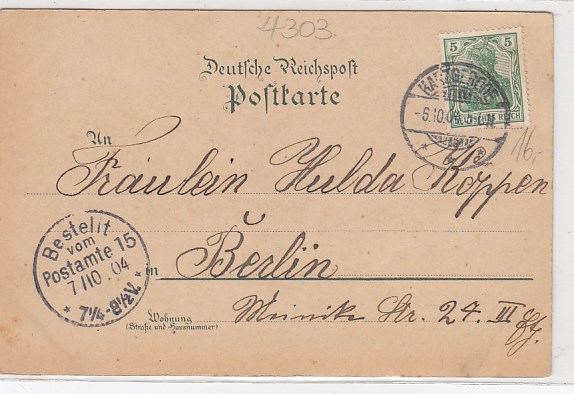 4303.
Deutsche Reichspost
Postkarte
5 5
DEUTSCHES REICH
-6.10.04
16,-
An
Fräulein Hulda Koppen
in Berlin
Bestellt
vom
Postamte 15
7/10.04
* 7¼-8½V. *
Wohnung
(Straße und Hausnummer)
Meinike Str. 24. III